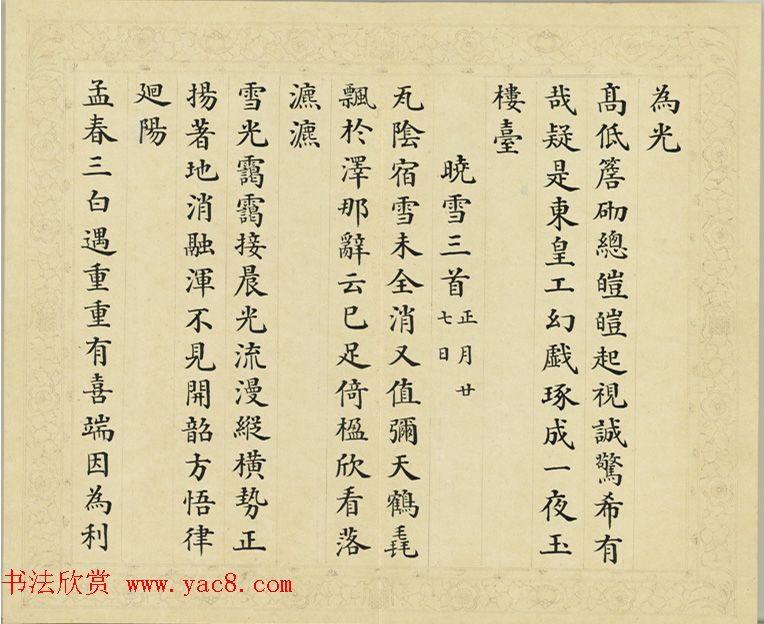 為光
髙低簷砌總皚皚起視誠驚希有
哉疑是東皇工幻戱琢成一夜玉
樓臺
曉雪三首 正月廿七日
瓦隂宿雪未全消又值彌天鶴毳
飄於澤那辭云已足倚楹欣看落
瀌瀌
雪光靄靄接晨光流漫縱横勢正
揚著地消融渾不見開韶方悟律
廻陽
孟春三白遇重重有喜端因為利
书法欣赏 www.yac8.com